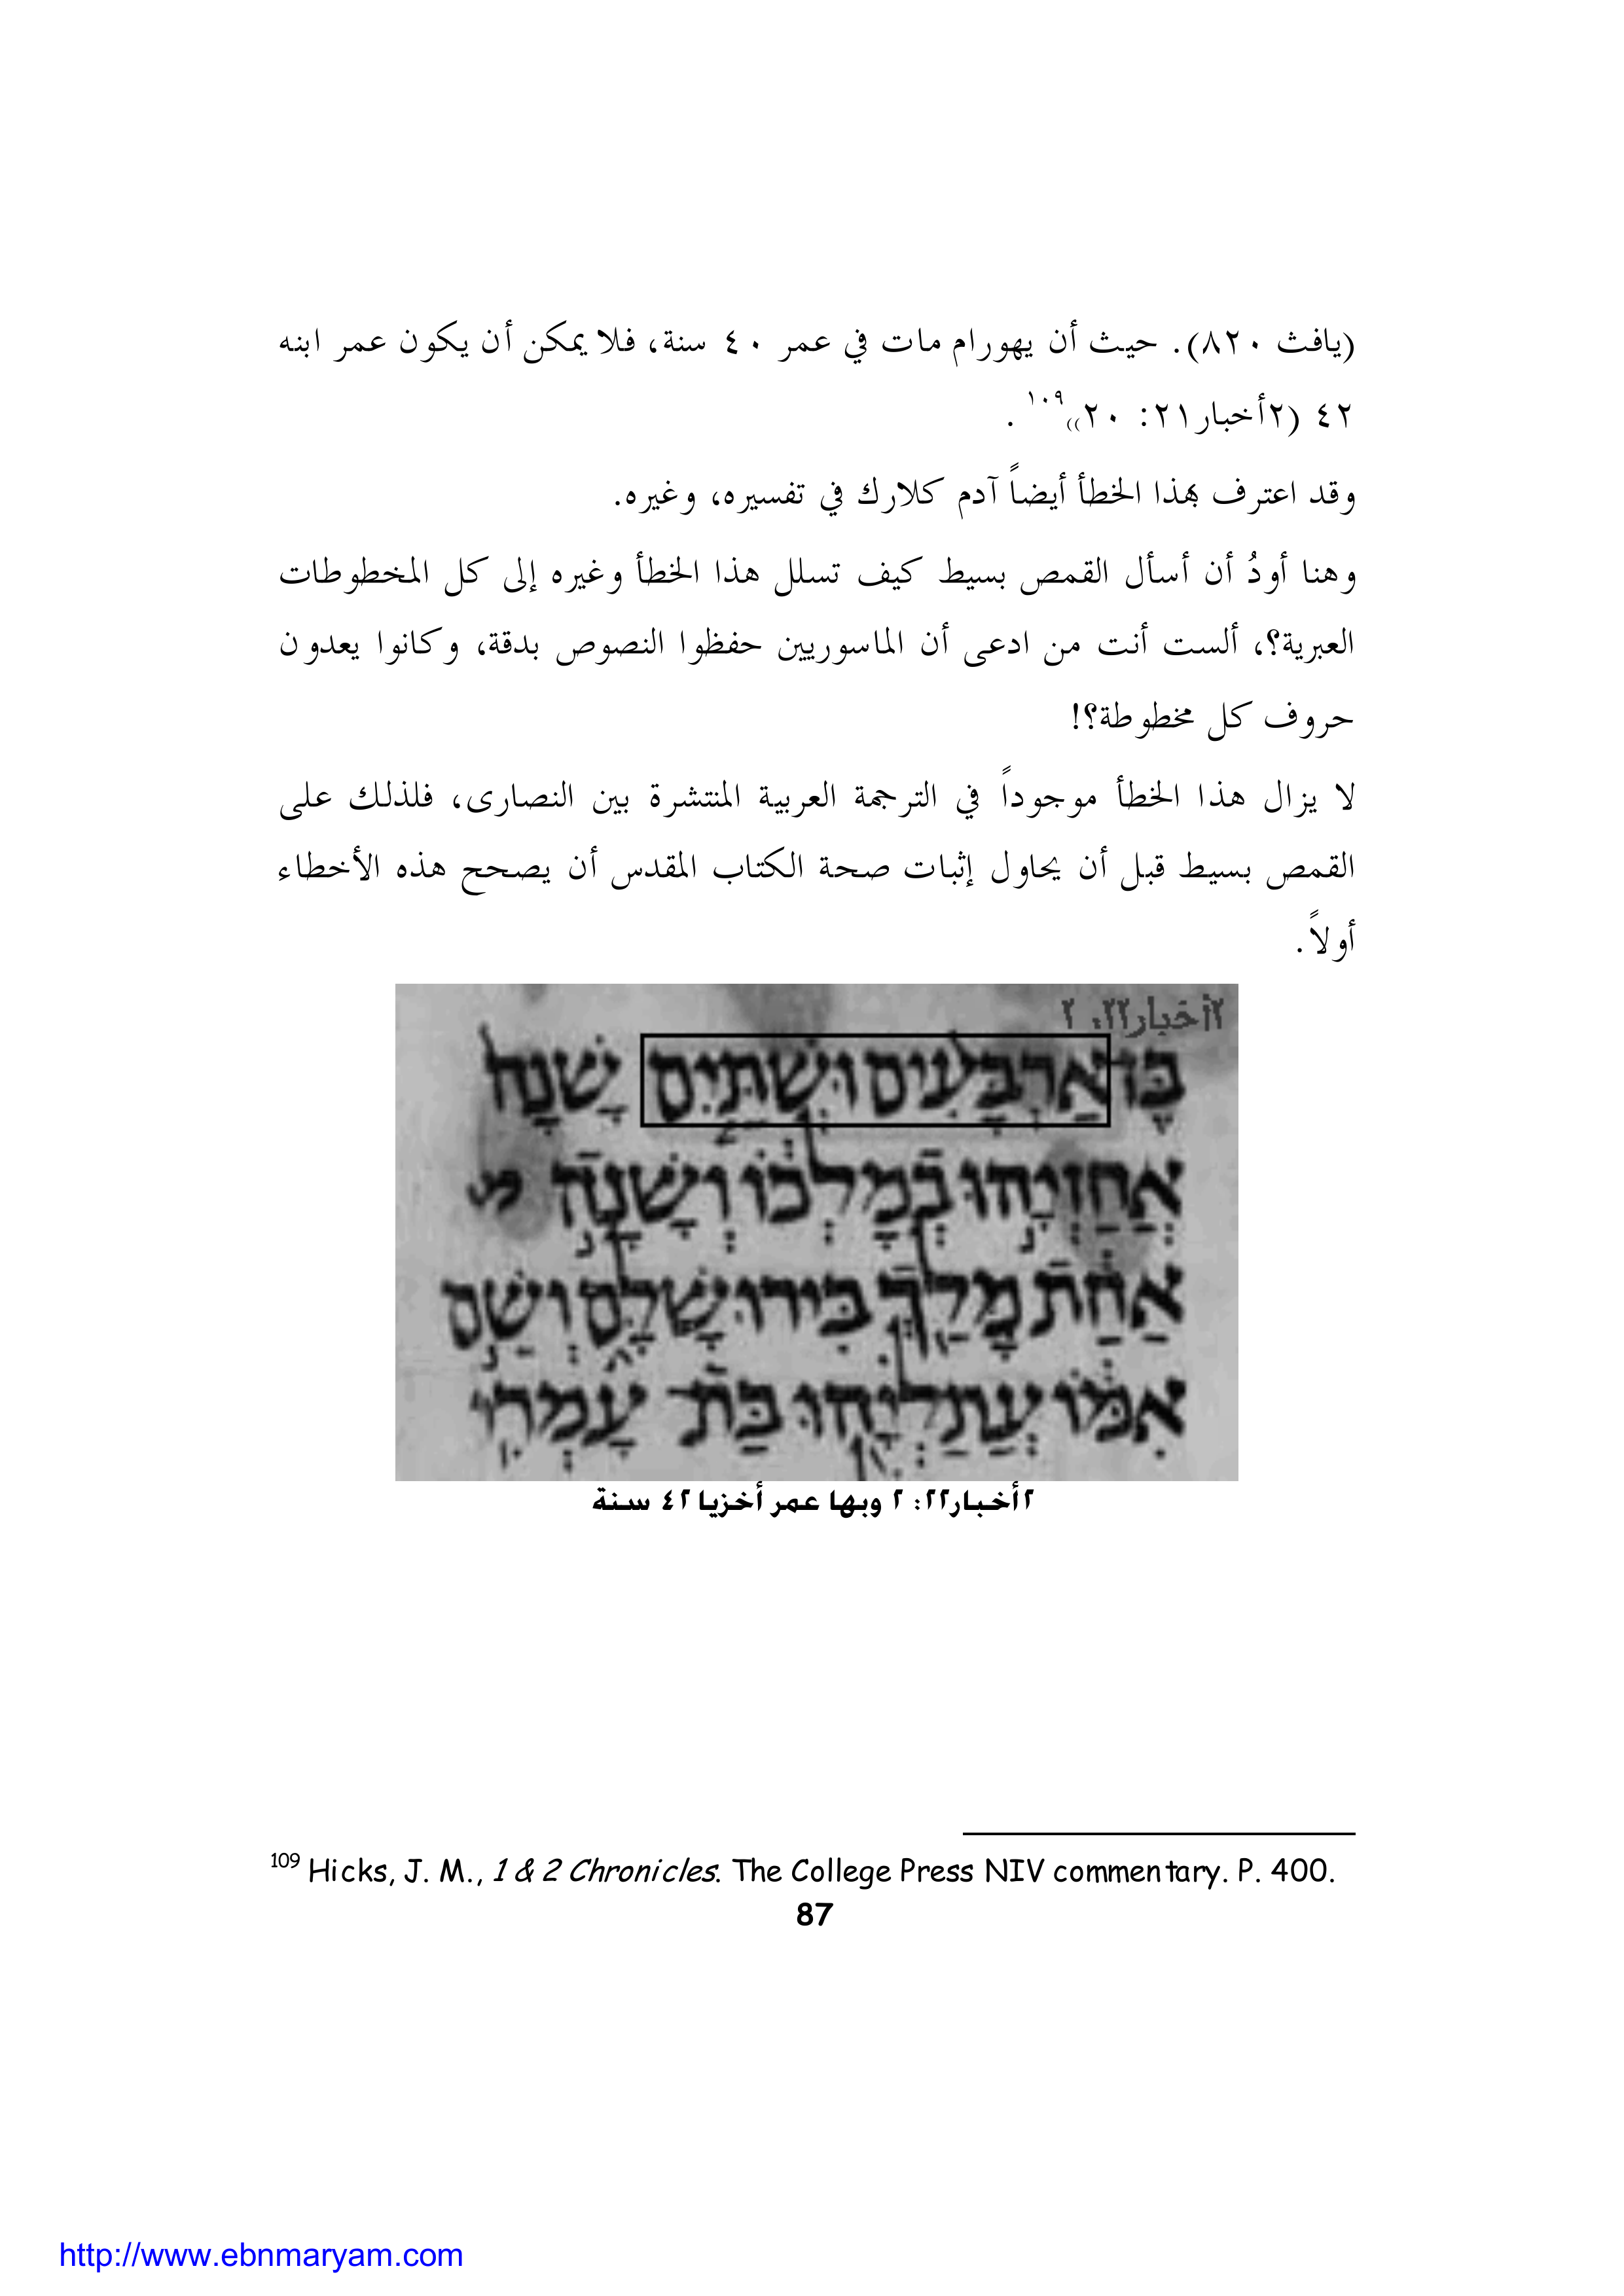 (يافث ٨٢٠). حيث أن يهورام مات في عمر ٤٠ سنة، فلا يمكن أن يكون عمر ابنه
٤٢ (٢أخبار٢١: ٢٠))١٠٩.
وقد اعترف بهذا الخطأ أيضاً آدم كلارك في تفسيره، وغيره.
وهنا أودُ أن أسأل القمص بسيط كيف تسلل هذا الخطأ وغيره إلى كل المخطوطات
العبرية؟، ألست أنت من ادعى أن الماسوريين حفظوا النصوص بدقة، وكانوا يعدون
حروف كل مخطوطة؟!
لا يزال هذا الخطأ موجوداً في الترجمة العربية المنتشرة بين النصارى، فلذلك على
القمص بسيط قبل أن يحاول إثبات صحة الكتاب المقدس أن يصحح هذه الأخطاء
أولاً.
٢أخبار٢٢: ٢
אַרְבָּעִים וּשְׁתַּיִם שָׁנָה
אֲחַזְיָהוּ בְמָלְכוֹ וְשָׁנָה
אַחַת מָלַךְ בִּירוּשָׁלָ͏ִם וְשֵׁם
אִמּוֹ עֲתַלְיָהוּ בַּת עָמְרִי
٢أخبار٢٢: ٢ وبها عمر أخزيا ٤٢ سنة
109 Hicks, J. M., 1 & 2 Chronicles. The College Press NIV commentary. P. 400.
87
http://www.ebnmaryam.com